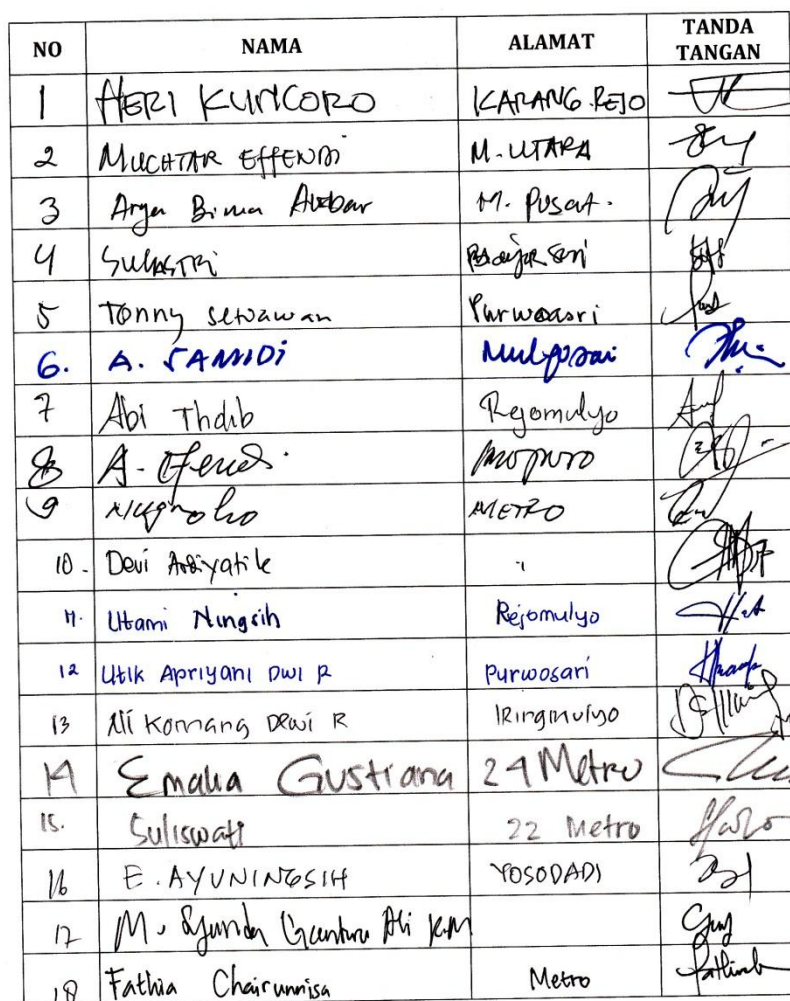 NO NAMA ALAMAT TANDA TANGAN
1 HERI KUNCORO KARANG.REJO
2 MUCHTAR EFFENDI M. UTARA
3 Arya Bima Akbar M. Pusat.
4 SULASTRI Banjar Sari
5 Tonny setiawan Purwoasri
6. A. SAMIDI Mulyosari
7 Abi Thalib Rejomulyo
8 A. Efendi.
9 Nugroho METRO
10. Devi "
11. Utami Ningsih Rejomulyo
12 Utik Apriyani Dwi R Purwosari
13 Ni Komang Dewi R Iringmulyo
14 Emalia Gustiana 24 Metro
15. Suliswati 22 Metro
16 E. AYUNINGSIH YOSODADI
17 M. Ali K.M
18 Fathia Chairunnisa Metro